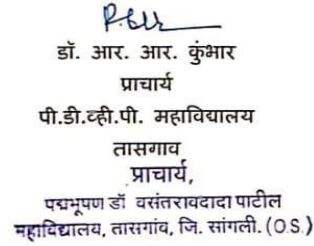 डॉ. आर. आर. कुंभार
प्राचार्य
पी.डी.व्ही.पी. महाविद्यालय
तासगाव
प्राचार्य,
पद्मभूषण डॉ वसंतरावदादा पाटील
महाविद्यालय, तासगांव, जि. सांगली. (O.S.)